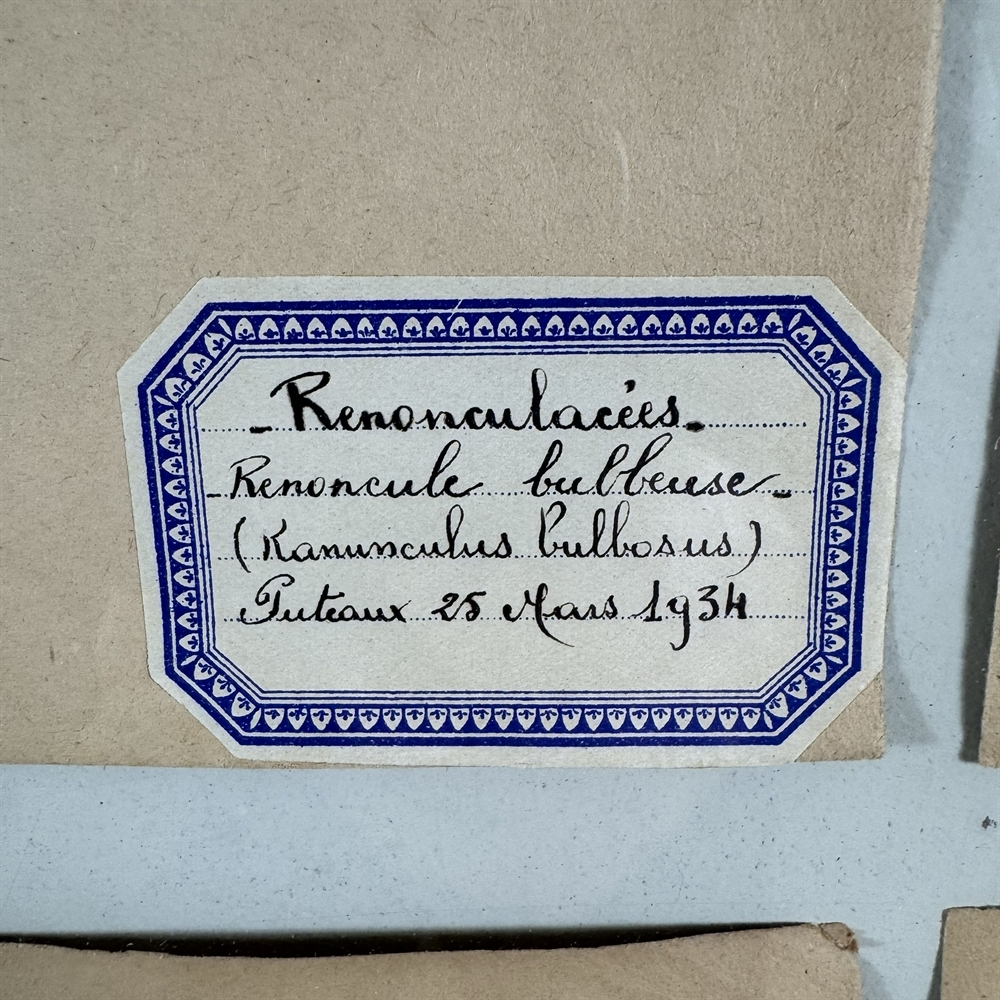 - Renonculacées -
- Renoncule bulbeuse -
(Ranunculus bulbosus)
Puteaux 25 Mars 1934